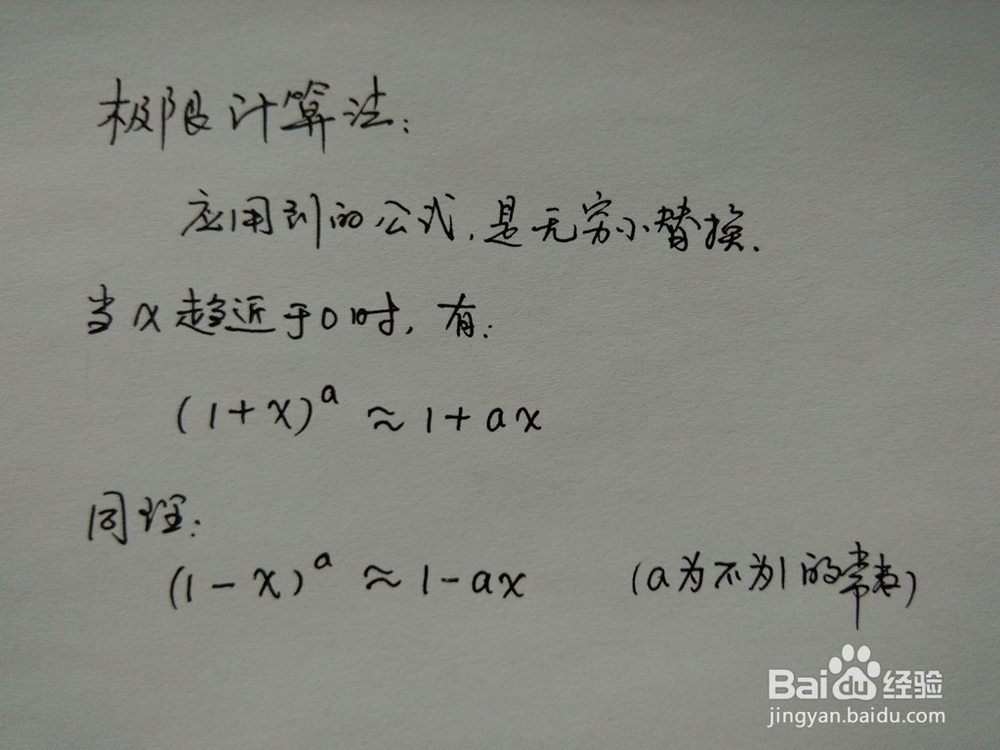 极限计算法:
应用到的公式,是无穷小替换.
当x趋近于0时,有:
(1+x)^a ≈ 1+ax
同理:
(1-x)^a ≈ 1-ax (a为不为1的常数)
Baidu经验
jingyan.baidu.com